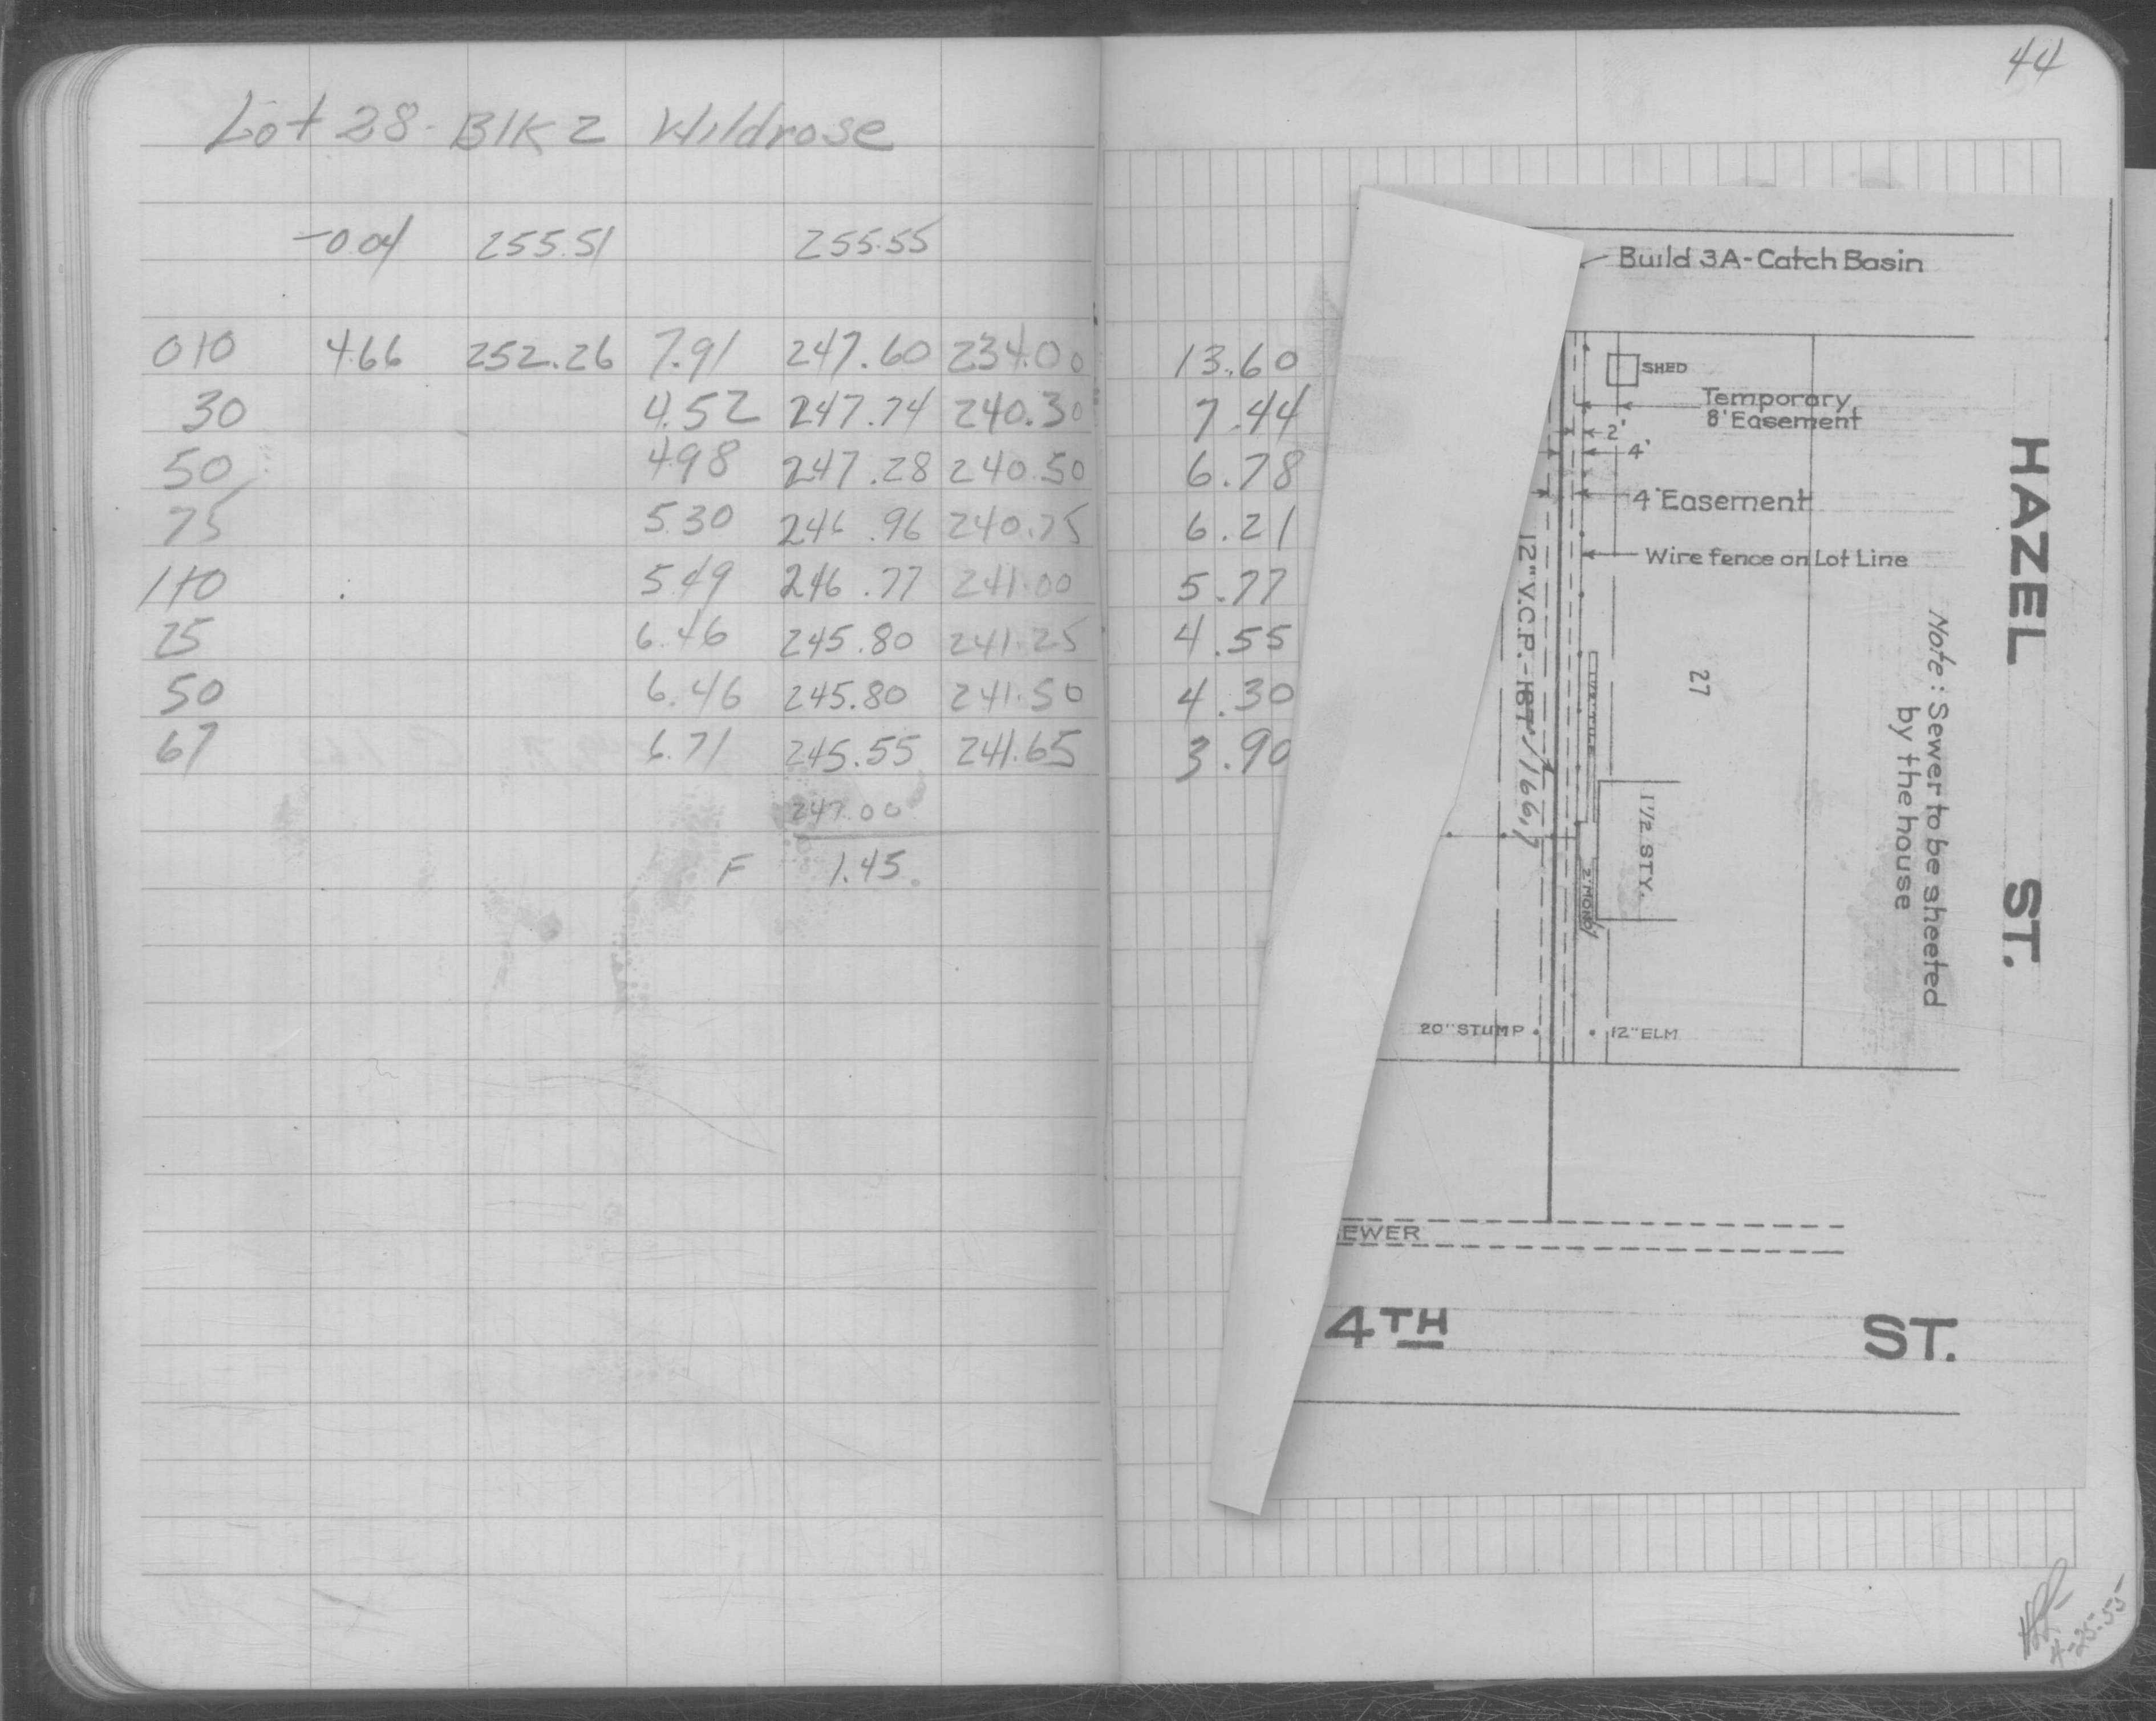 44
Lot 28 - Blk 2 Wildrose
-0.04 255.51 255.55
0+0 4.66 252.26 7.91 247.60 234.00 13.60
30 4.52 247.74 240.30 7.44
50 4.98 247.28 240.50 6.78
75 5.30 246.96 240.75 6.21
1+0 5.49 246.77 241.00 5.77
25 6.46 245.80 241.25 4.55
50 6.46 245.80 241.50 4.30
67 6.71 245.55 241.65 3.90
247.00
F 1.45
Build 3A-Catch Basin
SHED
Temporary
8' Easement
2'
4'
4' Easement
Wire fence on Lot Line
HAZEL ST.
Note: Sewer to be sheeted
by the house
27
12" V.C.P. - 187' 166.7
1 1/2 STY.
20" STUMP
12" ELM
EWER
4TH ST.
4-25-55